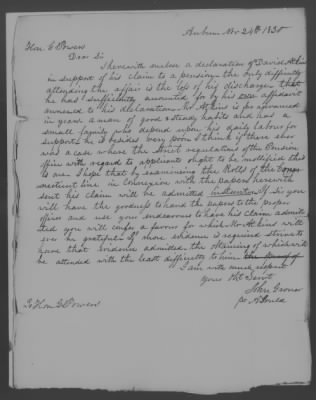 Auburn Nov 24th 1830
Hon. G Powers
Dear Sir
I herewith enclose a declaration of David Atkins
in support of his claim to a pension the only difficulty
attending the affair is the loss of his discharge that
he has sufficiently accounted for by his affidavit
annexed to his declaration. Mr Atkins is far advanced
in years a man of good & steady habits and has a
small family who depend upon his daily labour for
support. he is besides very poor I think if there ever
was a case where the strict regulations of the Pension
office with regard to applicants ought to be mollified this
is one. I hope that by examining the Rolls of the
line in connexion with the papers herewith
sent his claim will be admitted. If Sir you
will have the goodness to hand the papers to the proper
office and use your endeavours to have his claim admit
ted you will confer a favour for which Mr Atkins will
ever be grateful. If more evidence is required
than that evidence admitted, the obtaining of which will
be attended with the least difficulty to him
I am with much respect
Yours Obt Servt
John Grover
To Hon. G Powers